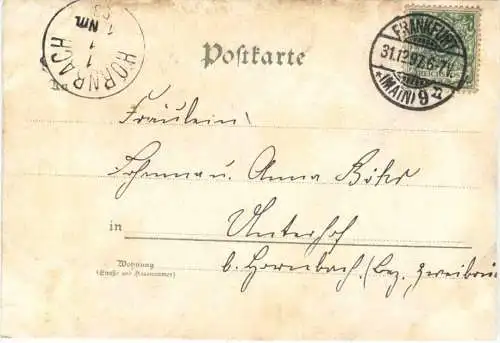 HORNBACH
1
1
Nm.
Postkarte
FRANKFURT
31.12.97.6-7N
*(MAIN)9*
An
Fräulein
Johanna u. Anna
in Unterhof
Wohnung
(Straße und Hausnummer)
b. Hornbach (Bez. Zweibrü